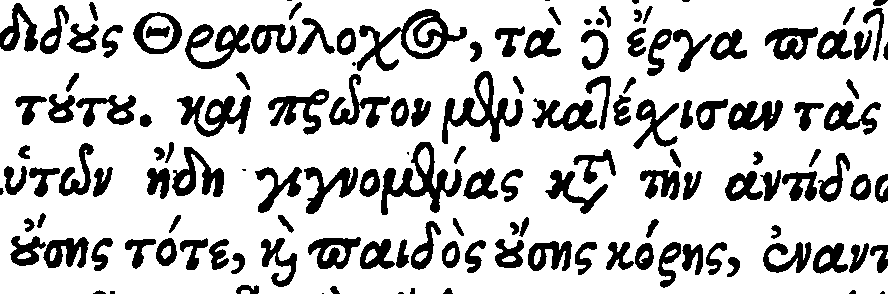 διδοὺς Θρασύλοχος, τὰ δὲ ἔργα πάντα
τούτου. καὶ πρῶτον μὲν κατέσχισαν τὰς
αὑτῶν ἤδη γιγνομένας κατὰ τὴν ἀντίδοσ
οὔσης τότε, καὶ παιδὸς οὔσης κόρης, ἐναντ